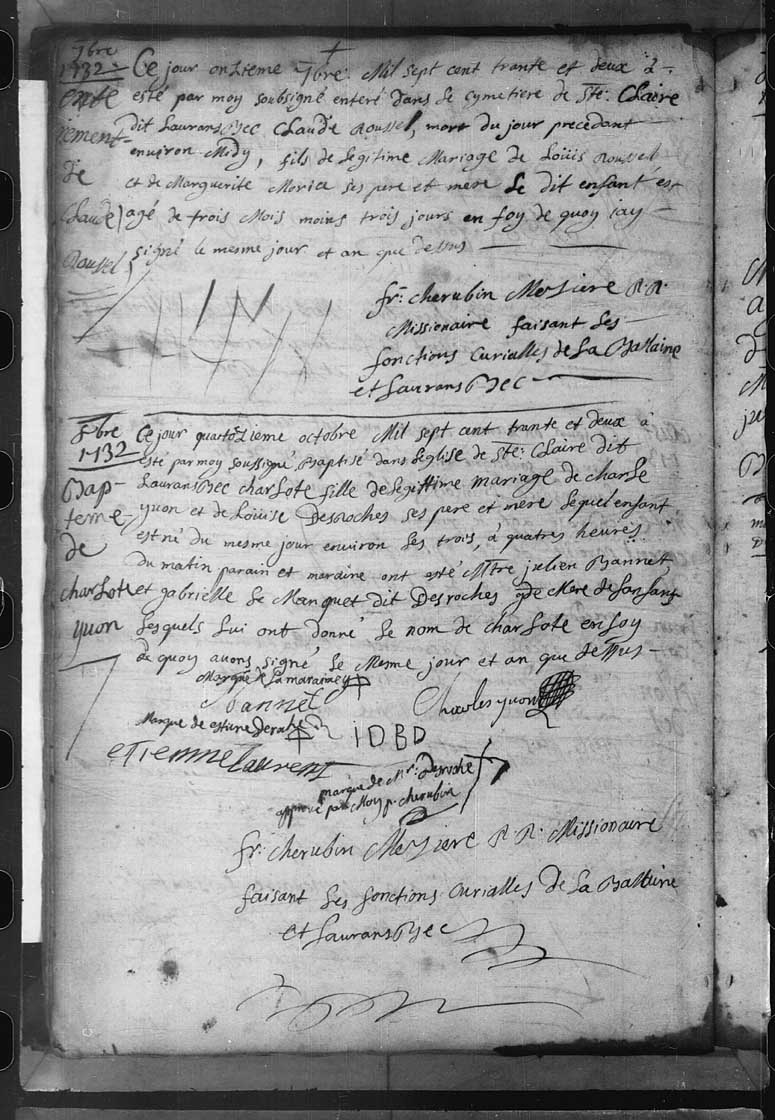 7bre
1732
enterement
de
Claude
Roussel
Ce jour onzieme 7bre. Mil sept cent trante et deux à
esté par moy soubsigné enteré dans le cymetiere de Ste: Claire
dit Laurans Bec Claude Roussel, mort du jour precedant
environ Midy, fils de legitime Mariage de Loüis Roussel
et de Marguerite Moria ses pere et mere Le dit enfant est
agé de trois Mois moins trois jours en foy de quoy jay
signé le mesme jour et an que dessus
fr: cherubin Meziere R. R.
Missionaire faisant Les
fonctions Curialles de La Balaine
et Laurans Bec
8bre
1732
Bap-
teme
de
charlote
yuon
Ce jour quatorzieme octobre Mil sept cent trante et deux à
esté par moy soussigné Baptisé dans leglise de Ste: Claire dit
Laurans Bec charlote fille de legittime mariage de charle
yuon et de Loüise Desroches ses pere et mere Lequel enfant
est né du mesme jour environ Les trois, à quatres heures
du matin parain et maraine ont esté Mtre julien Bannet
et gabrielle Le Manquet dit Desroches gde Mere de Lanfant
Lesquels Lui ont donné Le nom de charlote en foy
de quoy avons signé Le Mesme jour et an que dessus
Marque de La maraine
Bannet
Charles yuon
Marque de estiene Deroche
IDBD
etienne Laurent
marque de Mr: Desroche
approuvé par Moy p. cherubin
fr. cherubin Meziere R. R. Missionaire
faisant Les fonctions Curialles de La Balaine
et Laurans Bec